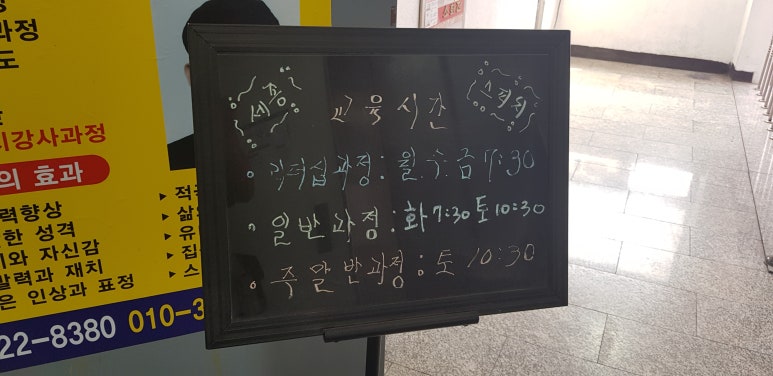 과정
도
리강사과정
의 효과
력향상
한 성격
와 자신감
발력과 재치
은 인상과 표정
▸ 적
▸ 삶
▸ 유
▸ 집
▸ 스
22-8380 010-3
세종
교육시간
스피치
• 리더십과정: 월.수.금 7:30
• 일반과정: 화 7:30 토 10:30
• 주말반과정: 토 10:30